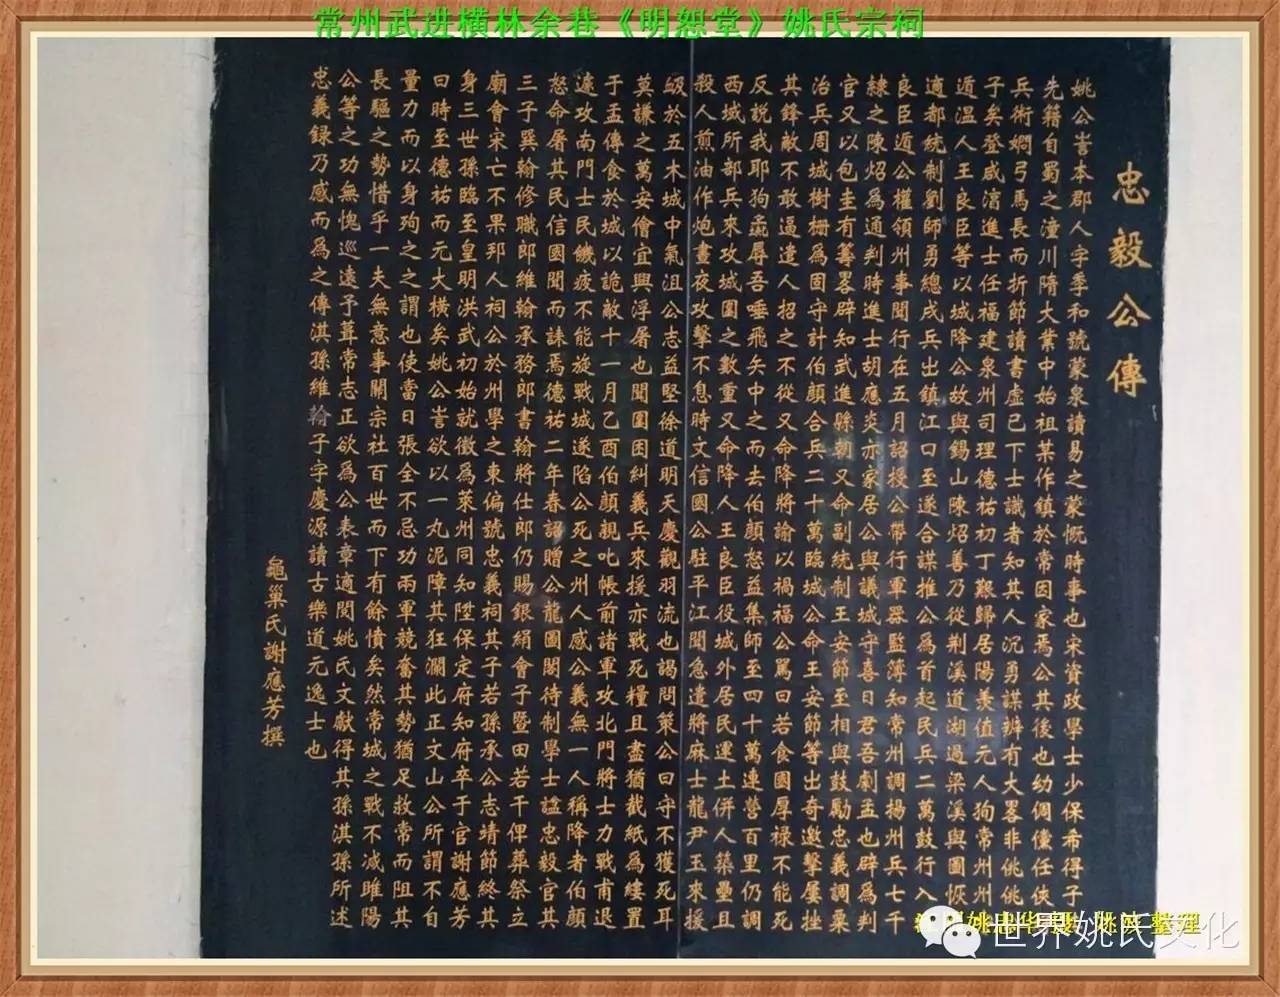 常州武进横林余巷《明恕堂》姚氏宗祠
忠毅公傳
姚公訔本郡人字季和號蒙泉讀易之蒙慨時事也宋資政學士少保希得子
先籍自蜀之潼川隋大業中始祖某作鎮於常因家焉公其後也幼倜儻任俠
兵術嫻弓馬長而折節讀書虛已下士識者知其人沉勇謀辨有大畧非佻佻
子矣登咸淳進士任福建泉州司理德祐初丁艱歸居陽羨值元人狥常州州
遁溫人王良臣等以城降公故與錫山陳炤善乃從荆溪道湖過梁溪與圖恢
適都統制劉師勇總戍兵出鎮江口至遂合謀推公爲首起民兵二萬鼓行入
良臣遁公權領州事聞行在五月詔授公帶行軍器監簿知常州調揚州兵七千
隸之陳炤爲通判時進士胡應炎亦家居公與議城守喜曰君吾劇孟也辟爲判
官又以包圭有籌畧辟知武進縣朝又命副統制王安節至相與鼓勵忠義調粟
治兵周城樹柵爲固守計伯顏合兵二十萬臨城公命王安節等出奇邀擊屢挫
其鋒敵不敢逼遣人招之不從又命降將諭以禍福公罵曰若食國厚祿不能死
反說我耶狗彘辱吾唾飛矢中之而去伯顏怒益集師至四十萬連營百里仍調
西域所部兵來攻城圍之數重又命降人王良臣役城外居民運土併人築壘且
殺人煎油作炮晝夜攻擊不息時文信國公駐平江聞急遣將麻士龍尹玉來援
衂於五木城中氣沮公志益堅徐道明天慶觀羽流也謁問策公曰守不獲死耳
莫謙之萬安僧宜興浮屠也聞圍困糾義兵來援亦戰死糧且盡猶截紙爲縷置
于盂傳食於城以詭敵十一月乙酉伯顏親叱帳前諸軍攻北門將士力戰甫退
遽攻南門士民饑疲不能旋戰城遂陷公死之州人感公義無一人稱降者伯顏
怒命屠其民信國聞而誄焉德祐二年春詔贈公龍圖閣待制學士諡忠毅官其
三子巽翰修職郎維翰承務郎書翰將仕郎仍賜銀絹會子暨田若干俾葬祭立
廟會宋亡不果邦人祠公於州學之東偏號忠義祠其子若孫承公志靖節終其
身三世孫臨至皇明洪武初始就徵爲萊州同知陞保定府知府卒于官謝應芳
曰時至德祐而元大橫矣姚公訔欲以一丸泥障其狂瀾此正文山公所謂不自
量力而以身殉之之謂也使當日張全不忌功兩軍競奮其勢猶足救常而阻其
長驅之勢惜乎一夫無意事關宗社百世而下有餘憤矣然常城之戰不減睢陽
公等之功無愧巡遠予葺常志正欲爲公表章適閱姚氏文獻得其孫淇孫所述
忠義録乃感而爲之傳淇孫維翰子字慶源讀古樂道元逸士也
龜巢氏謝應芳撰
整理
世界姚氏文化